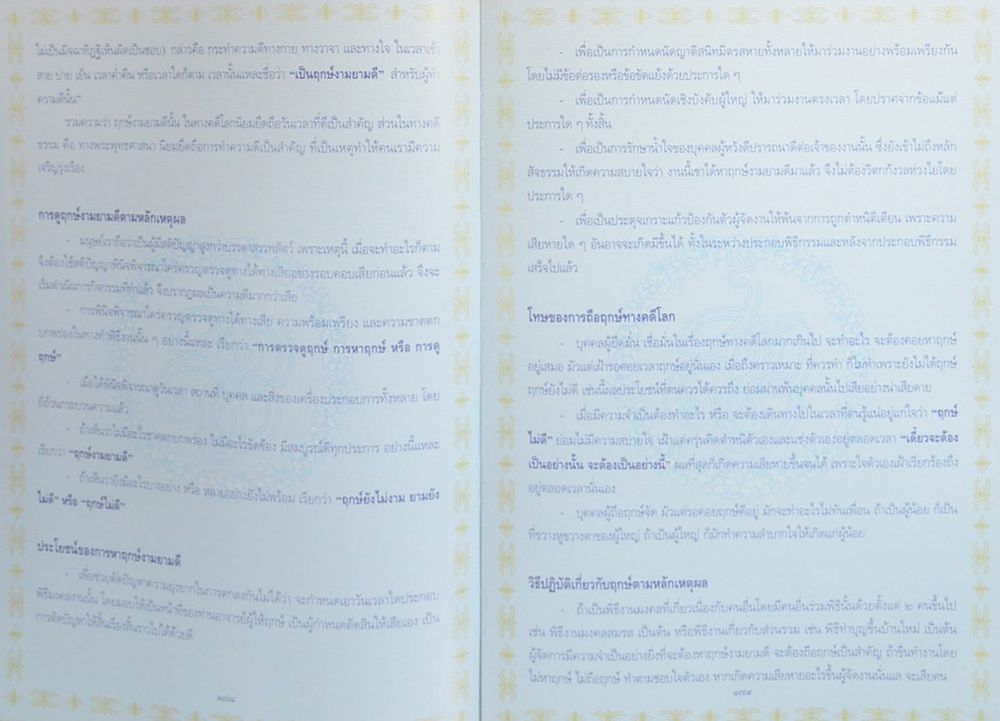 ไม่เป็นมิจฉาทิฏฐิเห็นผิดเป็นชอบ) กล่าวคือ กระทำความดีทางกาย ทางวาจา และทางใจ ในเวลาเช้า
สาย บ่าย เย็น เวลาค่ำคืน หรือเวลาใดก็ตาม เวลานั้นแหละชื่อว่า “เป็นฤกษ์งามยามดี” สำหรับผู้ทำ
ความดีนั้น”
รวมความว่า ฤกษ์งามยามดีนั้น ในทางคดีโลกนิยมยึดถือวันเวลาที่ดีเป็นสำคัญ ส่วนในทางคดี
ธรรม คือ ทางพระพุทธศาสนา นิยมยึดถือการทำความดีเป็นสำคัญ ที่เป็นเหตุทำให้คนเรามีความ
เจริญรุ่งเรือง
การดูฤกษ์งามยามดีตามหลักเหตุผล
- มนุษย์เราถือว่าเป็นผู้มีสติปัญญาสูงกว่าบรรดาสรรพสัตว์ เพราะเหตุนี้ เมื่อจะทำอะไรก็ตาม
จึงต้องใช้สติปัญญาพินิจพิจารณาใคร่ครวญตรวจดูทางได้ทางเสียอย่างรอบคอบเสียก่อนแล้ว จึงจะ
เริ่มดำเนินการกิจกรรมที่ทำแล้ว จึงปรากฏผลเป็นความดีมากกว่าเสีย
- การพินิจพิจารณาใคร่ครวญตรวจดูทางได้ทางเสีย ความพร้อมเพรียง และความขาดตก
บกพร่องในทางทำพิธีงานนั้น ๆ อย่างนี้แหละ เรียกว่า “การตรวจดูฤกษ์ การหาฤกษ์ หรือ การดู
ฤกษ์”
- เมื่อได้พินิจพิจารณาดูวันเวลา สถานที่ บุคคล และสิ่งของเครื่องประกอบการทั้งหลาย โดย
ถี่ถ้วนกระบวนความแล้ว
- ถ้าเห็นว่าไม่มีอะไรขาดตกบกพร่อง ไม่มีอะไรขัดข้อง มีสมบูรณ์ดีทุกประการ อย่างนี้แหละ
เรียกว่า “ฤกษ์งามยามดี”
- ถ้าเห็นว่ายังมีอะไรบางอย่าง หรือ หลายอย่างยังไม่พร้อม เรียกว่า “ฤกษ์ยังไม่งาม ยามยัง
ไม่ดี” หรือ “ฤกษ์ไม่ดี”
ประโยชน์ของการหาฤกษ์งามยามดี
- เพื่อช่วยตัดปัญหาความยุ่งยากในการตกลงกันไม่ได้ว่า จะกำหนดเอาวันเวลาใดประกอบ
พิธีมงคลงานนั้น โดยมอบให้เป็นหน้าที่ของท่านอาจารย์ผู้ให้ฤกษ์ เป็นผู้กำหนดตัดสินให้เสียเอง เป็น
การตัดปัญหาให้สิ้นเรื่องสิ้นราวไปได้ด้วยดี
๑๗๘
- เพื่อเป็นการกำหนดนัดญาติสนิทมิตรสหายทั้งหลายให้มาร่วมงานอย่างพร้อมเพรียงกัน
โดยไม่มีข้อต่อรองหรือข้อขัดแย้งด้วยประการใด ๆ
- เพื่อเป็นการกำหนดนัดเชิงบังคับผู้ใหญ่ ให้มาร่วมงานตรงเวลา โดยปราศจากข้อแม้แต่
ประการใด ๆ ทั้งสิ้น
- เพื่อเป็นการรักษาน้ำใจของบุคคลผู้หวังดีปรารถนาดีต่อเจ้าของงานนั้น ซึ่งยังเข้าไม่ถึงหลัก
สัจธรรมให้เกิดความสบายใจว่า งานนี้เขาได้หาฤกษ์งามยามดีมาแล้ว จึงไม่ต้องวิตกกังวลห่วงใยโดย
ประการใด ๆ
- เพื่อเป็นประดุจเกราะแก้วป้องกันตัวผู้จัดงานให้พ้นจากการถูกตำหนิติเตียน เพราะความ
เสียหายใด ๆ อันอาจจะเกิดมีขึ้นได้ ทั้งในระหว่างประกอบพิธีกรรมและหลังจากประกอบพิธีกรรม
เสร็จไปแล้ว
โทษของการถือฤกษ์ทางคดีโลก
- บุคคลผู้ยึดมั่น เชื่อมั่นในเรื่องฤกษ์ทางคดีโลกมากเกินไป จะทำอะไร จะต้องคอยหาฤกษ์
อยู่เสมอ มัวแต่เฝ้ารอคอยเวลาฤกษ์อยู่นั่นเอง เมื่อถึงคราวเหมาะ ที่ควรทำ ก็ไม่ทำเพราะยังไม่ได้ฤกษ์
ฤกษ์ยังไม่ดี เช่นนี้ผลประโยชน์ที่ตนควรได้ควรถึง ย่อมผ่านพ้นบุคคลนั้นไปเสียอย่างน่าเสียดาย
- เมื่อมีความจำเป็นต้องทำอะไร หรือ จะต้องเดินทางไปในเวลาที่ตนรู้แน่อยู่แก่ใจว่า “ฤกษ์
ไม่ดี” ย่อมไม่มีความสบายใจ เฝ้าแต่ครุ่นคิดตำหนิตัวเองและแช่งตัวเองอยู่ตลอดเวลา “เดี๋ยวจะต้อง
เป็นอย่างนั้น จะต้องเป็นอย่างนี้” ผลที่สุดก็เกิดความเสียหายขึ้นจนได้ เพราะใจตัวเองเฝ้าเรียกร้องถึง
อยู่ตลอดเวลานั่นเอง
- บุคคลผู้ถือฤกษ์จัด มัวแต่รอคอยฤกษ์ดีอยู่ มักจะทำอะไรไม่ทันเพื่อน ถ้าเป็นผู้น้อย ก็เป็น
ที่ขวางหูขวางตาของผู้ใหญ่ ถ้าเป็นผู้ใหญ่ ก็มักทำความลำบากใจให้เกิดแก่ผู้น้อย
วิธีปฏิบัติเกี่ยวกับฤกษ์ตามหลักเหตุผล
- ถ้าเป็นพิธีงานมงคลที่เกี่ยวเนื่องกับคนอื่นโดยมีคนอื่นร่วมพิธีนั้นด้วยตั้งแต่ ๒ คนขึ้นไป
เช่น พิธีงานมงคลสมรส เป็นต้น หรือพิธีงานเกี่ยวกับส่วนรวม เช่น พิธีทำบุญขึ้นบ้านใหม่ เป็นต้น
ผู้จัดการมีความจำเป็นอย่างยิ่งที่จะต้องหาฤกษ์งามยามดี จะต้องถือฤกษ์เป็นสำคัญ ถ้าขืนทำงานโดย
ไม่หาฤกษ์ ไม่ถือฤกษ์ ทำตามชอบใจตัวเอง หากเกิดความเสียหายอะไรขึ้นผู้จัดงานนั่นแล จะเสียคน
๑๗๙